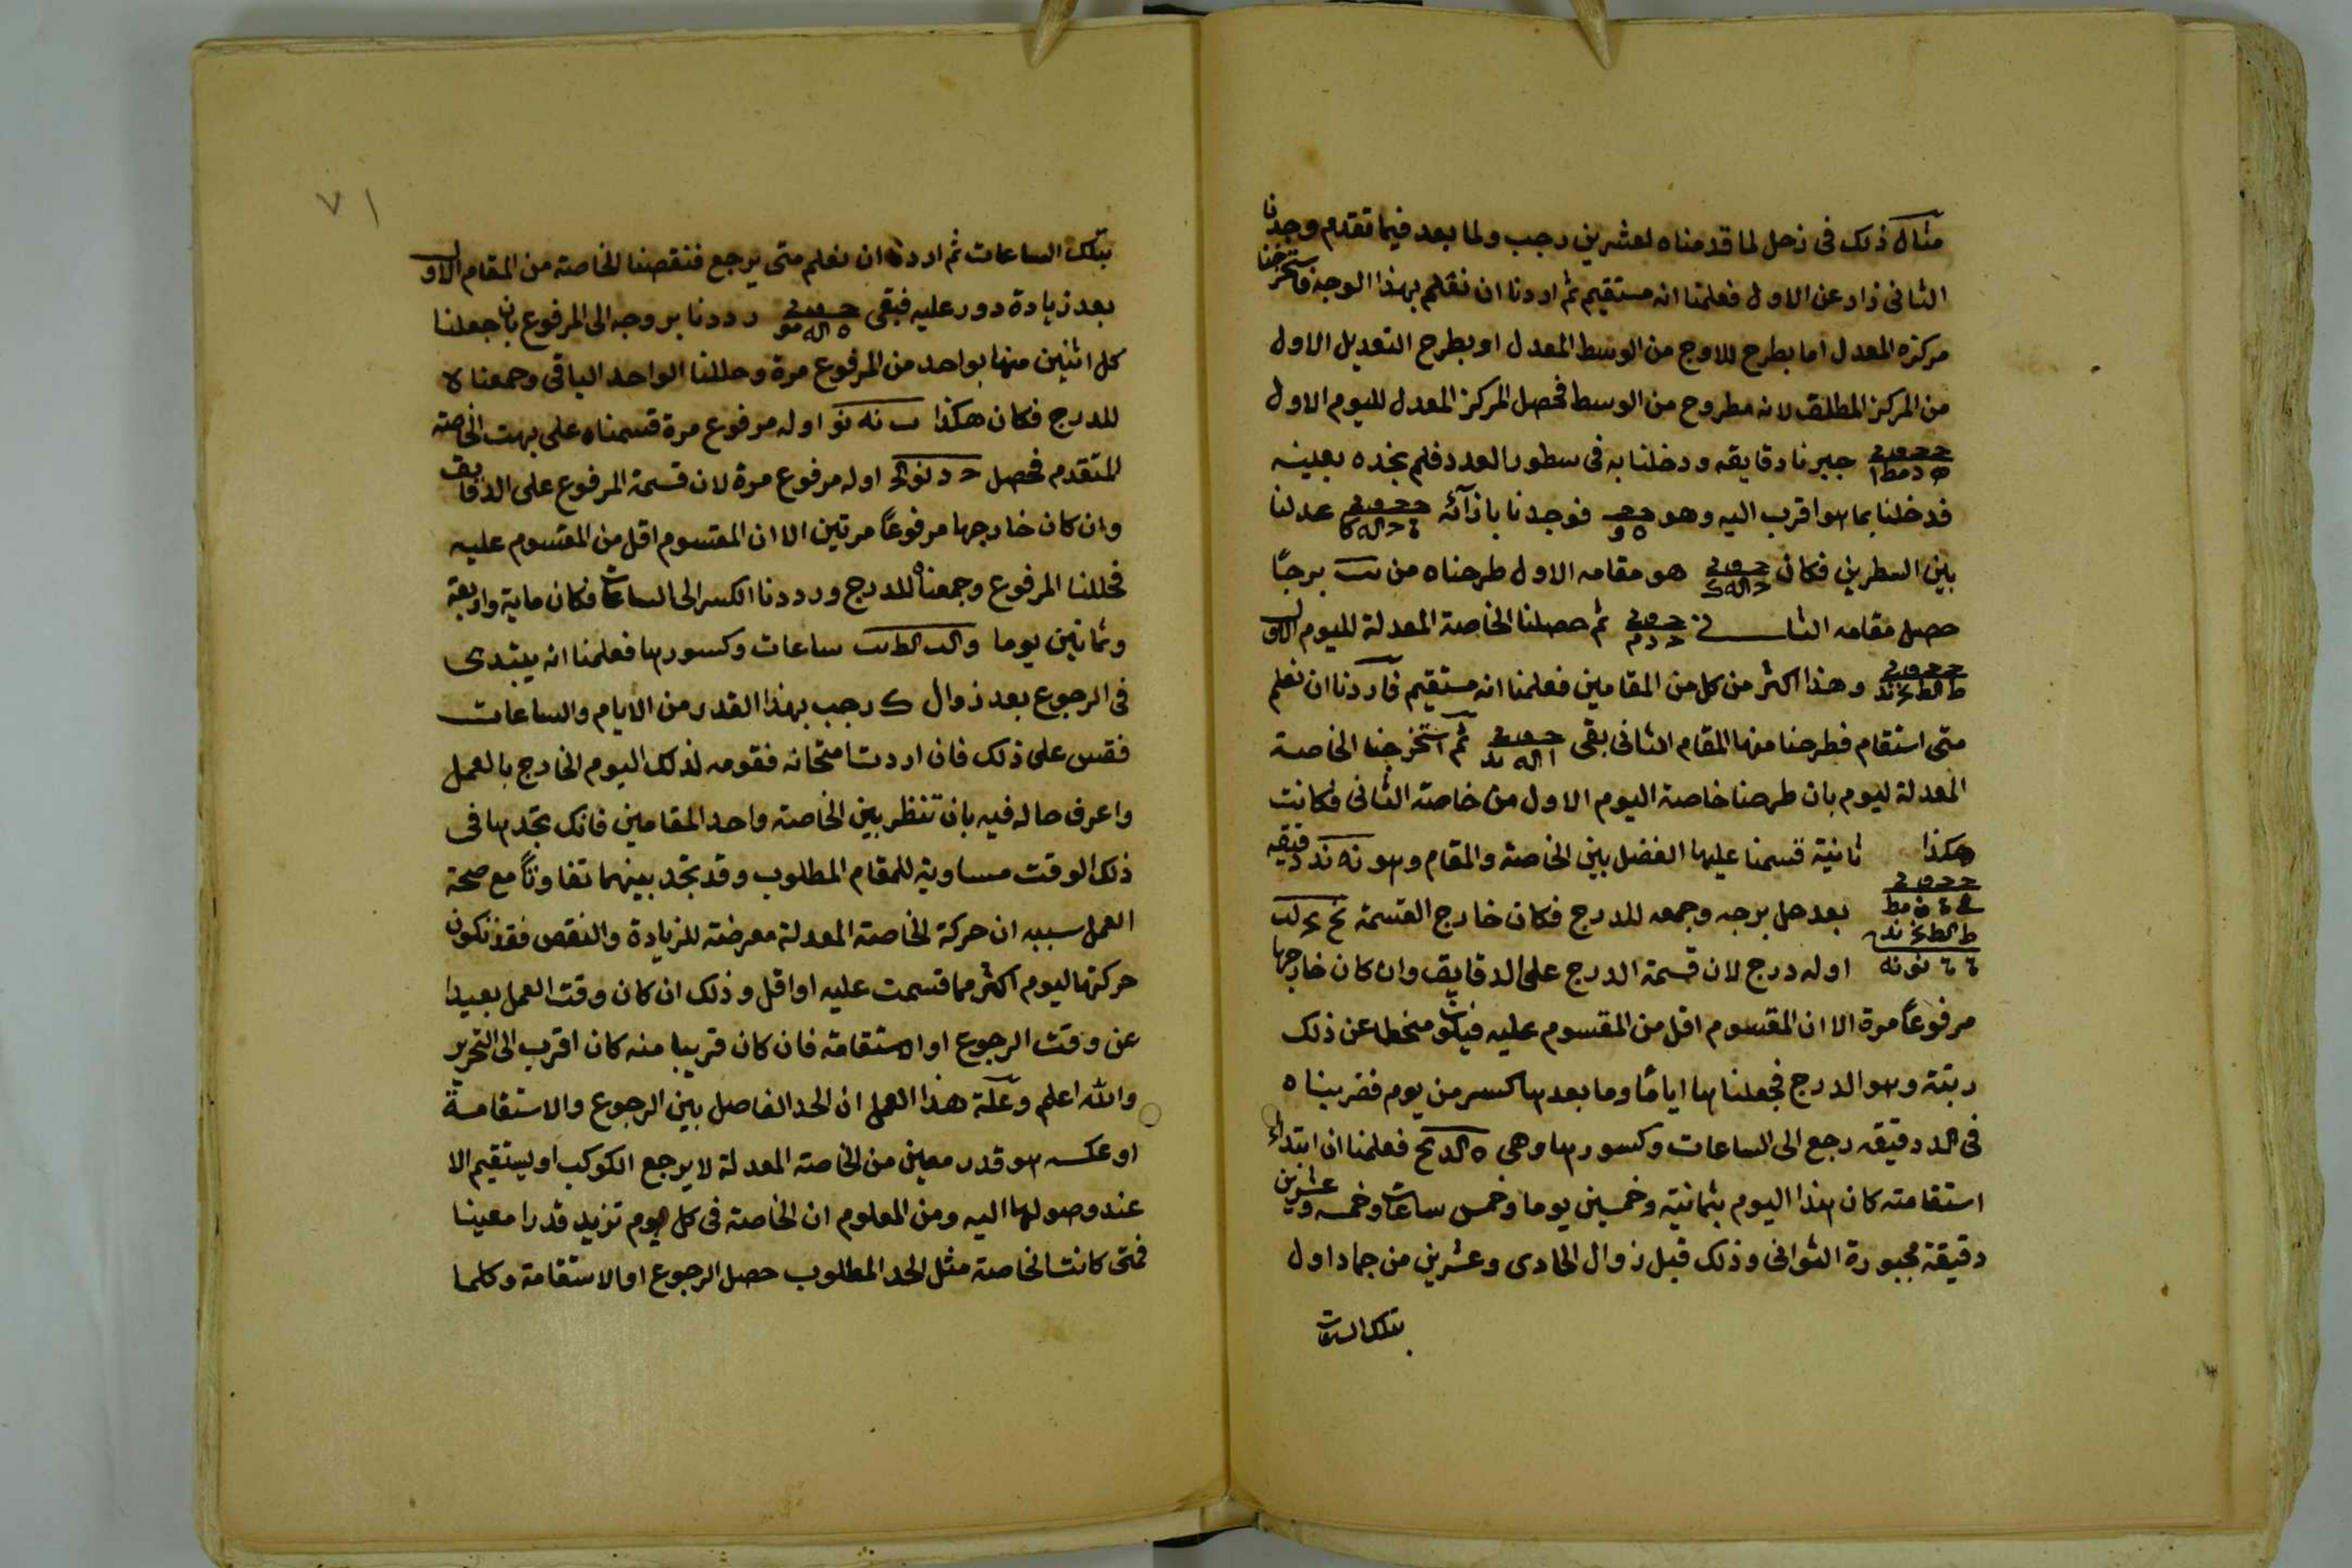 مثال ذلك فى زحل لما قدمناه لعشرين رجب ولما بعد فيما تقدم وجدنا
الثانى زاد عن الاول فعلمنا انه مستقيم ثم اردنا ان نعلم بهذا الوجه فاستخرجنا
مركزه المعدل اما بطرح الاوج من الوسط المعدل او بطرح التعديل الاول
من المركز المطلق لانه مطروح من الوسط فحصل المركز المعدل لليوم الاول
جبرنا دقايقه ودخلنا به فى سطور العدد فلم نجده بعينه
فدخلنا بما هو اقرب اليه وهو فوجدنا بازآئه عدلنا
بين السطرين فكان هو مقامه الاول طرحناه من يب برجًا
حصل مقامه الثانى ثم حصلنا الخاصة المعدلة لليوم الاول
وهذا اكثر من كل من المقامين فعلمنا انه مستقيم فاردنا ان نعلم
متى استقام فطرحنا منها المقام الثانى بقى ثم استخرجنا الخاصة
المعدلة ليوم بان طرحنا خاصة اليوم الاول من خاصة الثانى فكانت
هكذا ثانية قسمنا عليها الفضل بين الخاصة والمقام وهو نه ند دقيقه
بعد حل برجه وجمعه للدرج فكان خارج القسمة نح يح لب
اوله درج لان قسمة الدرج على الدقايق وان كان خارجها
نو نه
مرفوعًا مرة الا ان المقسوم اقل من المقسوم عليه فيكون منحطا عن ذلك
رتبة وهو الدرج فجعلناها ايامًا وما بعدها كسر من يوم فضربناه
فى الد دقيقه رجع الى الساعات وكسورها وهى ه الد يح فعلمنا ان ابتداء
استقامته كان هذا اليوم بثمانية وخمسين يوما وخمس ساعات وخمسه وعشرين
دقيقة مجبورة الثوانى وذلك قبل زوال الحادى وعشرين من جماد اول
بتلك الساعات
٧١
بتلك الساعات ثم اردنا ان نعلم متى يرجع فنقصنا الخاصة من المقام الاول
بعد زيادة دور عليه فبقى رددنا بروجه الى المرفوع بان جعلنا
كل اثنين منها بواحد من المرفوع مرة وحللنا الواحد الباقى وجمعناه
للدرج فكان هكذا ب نه نو اوله مرفوع مرة قسمناه على بهت الخاصة
المتقدم فحصل اوله مرفوع مرة لان قسمة المرفوع على الدقايق
وان كان خارجها مرفوعًا مرتين الا ان المقسوم اقل من المقسوم عليه
فحللنا المرفوع وجمعناه للدرج ورددنا الكسر الى الساعات فكان ماية واربعة
وثمانين يوما ساعات وكسورها فعلمنا انه يبتدى
فى الرجوع بعد زوال ك رجب بهذا القدر من الايام والساعات
فقس على ذلك فان اردت امتحانه فقومه لذلك اليوم الخارج بالعمل
واعرف حاله فيه بان تنظر بين الخاصة واحد المقامين فانك تجدها فى
ذلك الوقت مساوية للمقام المطلوب وقد تجد بينهما تفاوتاً مع صحة
العمل سببه ان حركة الخاصة المعدلة معرضة للزيادة والنقص فقد تكون
حركتها ليوم اكثر مما قسمت عليه او اقل وذلك ان كان وقت العمل بعيدا
عن وقت الرجوع او الاستقامة فان كان قريبا منه كان اقرب الى التحرير
والله اعلم وعلة هذا العمل ان الحد الفاصل بين الرجوع والاستقامة
او عكسه هو قدر معين من الخاصة المعدلة لا يرجع الكوكب او يستقيم الا
عند وصولها اليه ومن المعلوم ان الخاصة فى كل يوم تزيد قدرا معينا
فمتى كانت الخاصة مثل الحد المطلوب حصل الرجوع او الاستقامة وكلما